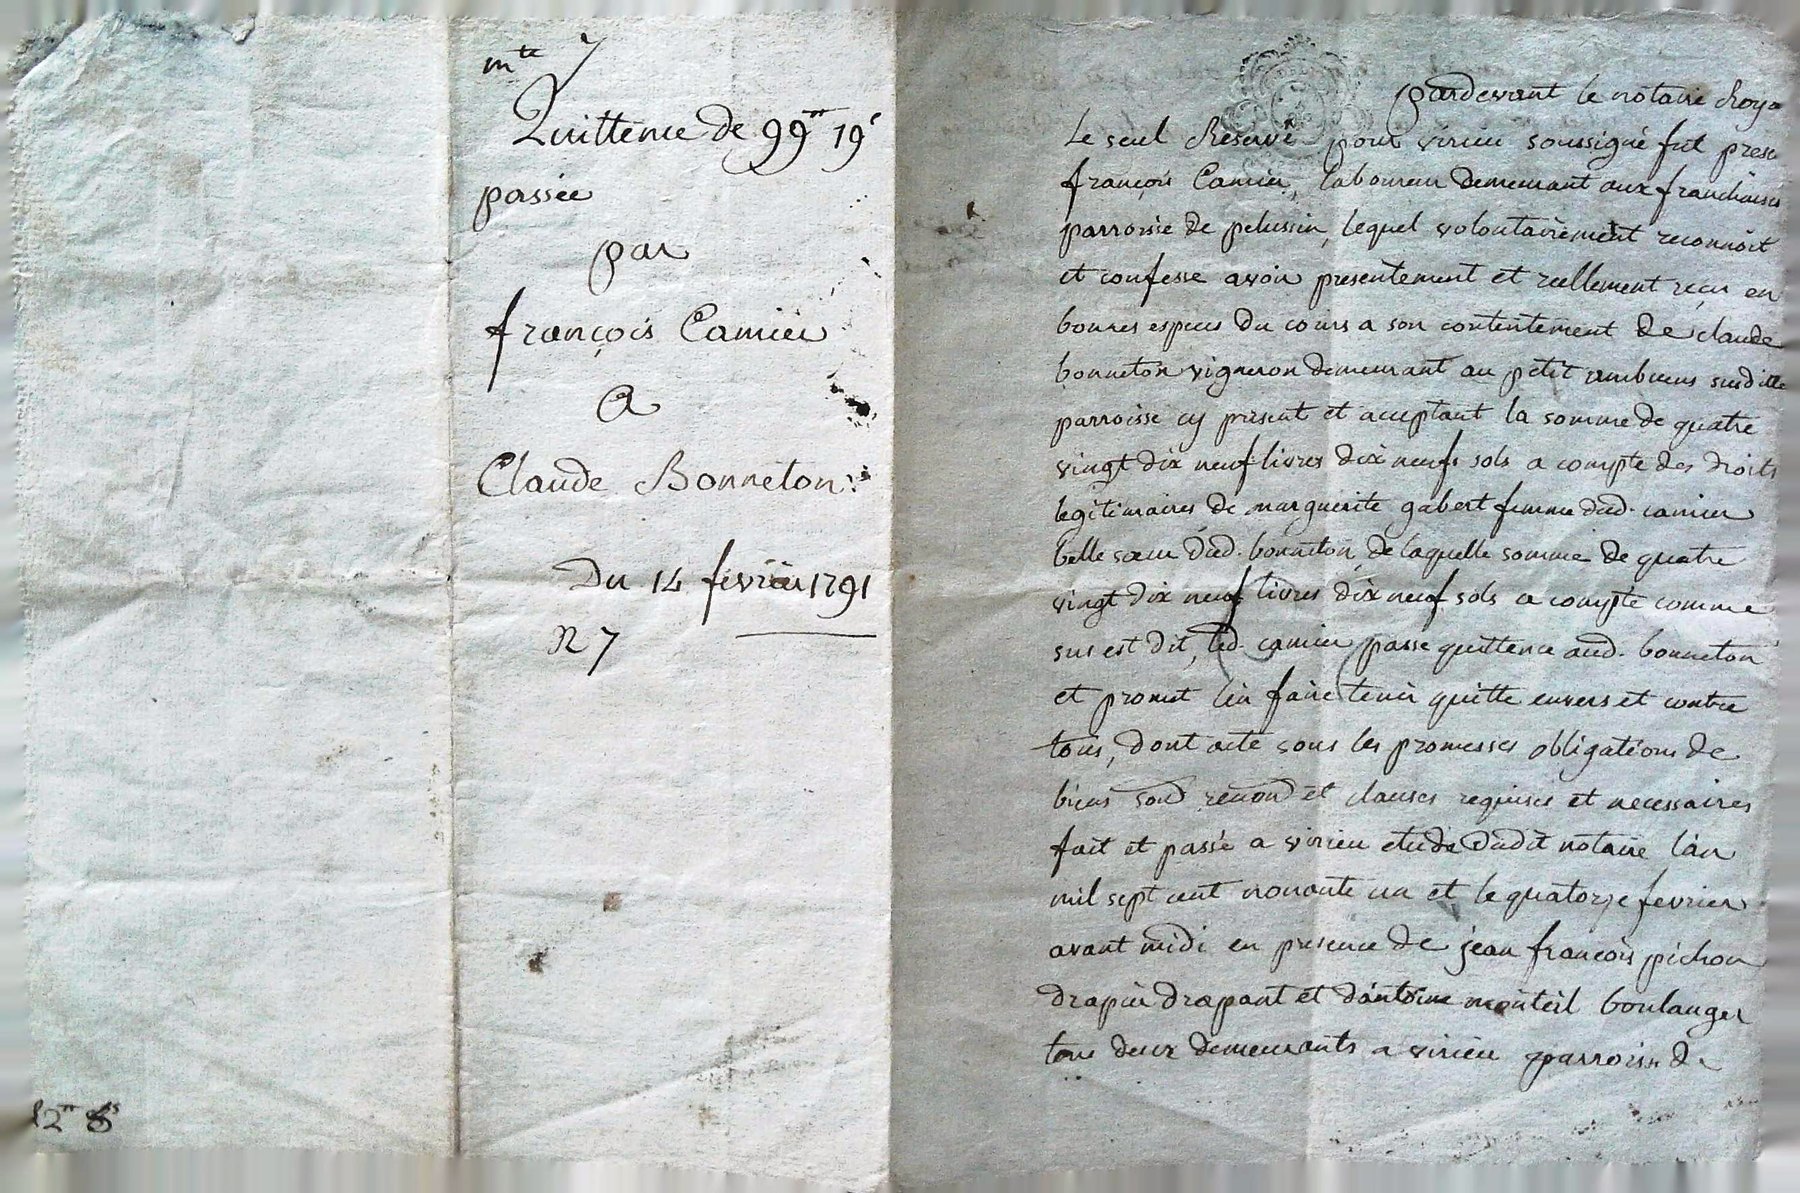 mte
Quittence de 99 ₶ 19 s
passée
par
françois Camier
A
Claude Bonneton
Du 14 fevrier 1791
N 7
2 ₶ 8 s
pardevant le notaire Roya
Le seul Reservé pour virieu soussigné fut prese
françois Camier, laboureur demeurant aux franchises
parroisse de pelussin, lequel volontairement reconnoit
et confesse avoir presentement et reellement reçu en
bonnes especes du cours a son contentement de claude
bonneton vigneron demeurant au petit susditte
parroisse cy present et acceptant la somme de quatre
vingt dix neuf livres dix neufs sols a compte des droits
legitimaires de marguerite gabert femme dud. camier
belle sœur dud. bonneton, de laquelle somme de quatre
vingt dix neuf livres dix neuf sols a compte comme
sus est dit, led. camier passe quittence aud. bonneton
et promet l'en faire tenir quitte envers et contre
tous, dont acte sous les promesses obligations de
biens renond et clauses requises et necessaires
fait et passé a virieu etude dudit notaire l'an
mil sept cent nonante un et le quatorze fevrier
avant midi en presence de jean françois pichon
drapier drapant et d'antoine monteil boulanger
tous deux demeurants a virieu parroisse de